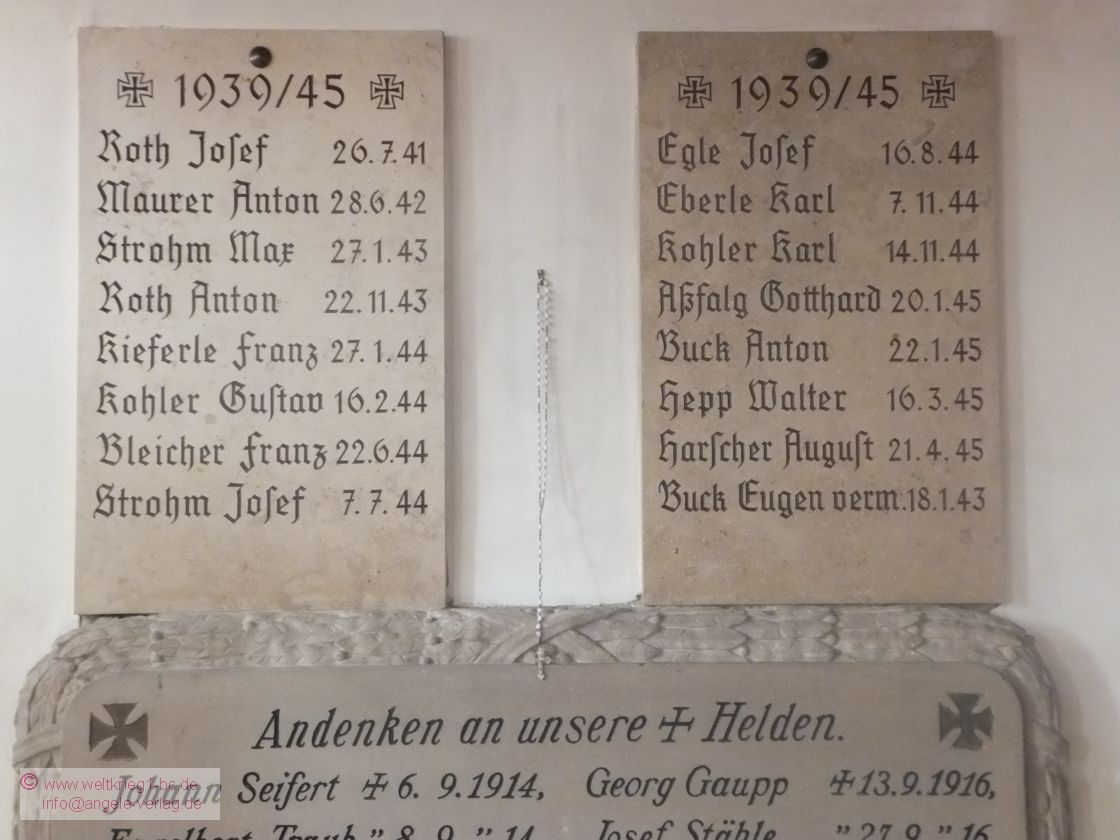 1939/45
Roth Josef 26.7.41
Maurer Anton 28.6.42
Strohm Max 27.1.43
Roth Anton 22.11.43
Kieferle Franz 27.1.44
Kohler Gustav 16.2.44
Bleicher Franz 22.6.44
Strohm Josef 7.7.44
1939/45
Egle Josef 16.8.44
Eberle Karl 7.11.44
Kohler Karl 14.11.44
Aßfalg Gotthard 20.1.45
Buck Anton 22.1.45
Hepp Walter 16.3.45
Harscher August 21.4.45
Buck Eugen verm. 18.1.43
Andenken an unsere ✝ Helden.
Johann Seifert ✝ 6. 9. 1914, Georg Gaupp ✝ 13. 9. 1916,
Engelbert Traub " 8. 9. " 14 Josef Stähle " 27. 9. " 16
© www.weltkrieg1-bc.de
info@angele-verlag.de